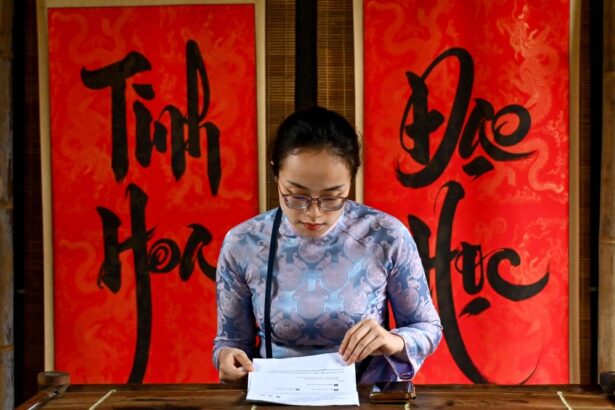 Tinh
Hoa
Đạo
Học